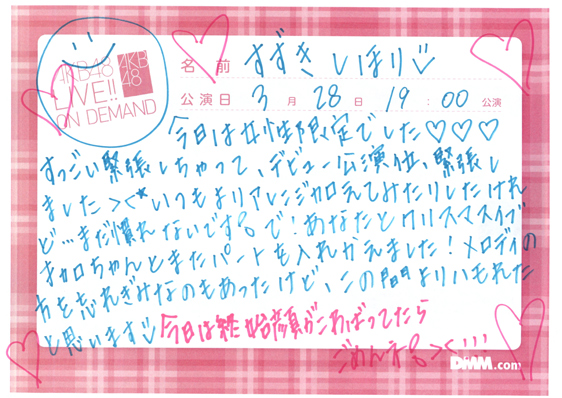 AKB48
LIVE!!
ON DEMAND
AKB
48
名前 すずきしほり♡
公演日 3月28日 19:00公演
今日は女性限定でした♡♡♡
すっごい緊張しちゃって、デビュー公演位、緊張し
ました＞＜* いつもよりアレンジ加えてみたりしたけれ
ど…まだ慣れないです。で！あなたとクリスマスイブ
加ちゃんとまたパートを入れかえました！メロディの
方を忘れぎみなのもあったけど、この間よりハモれた
と思います♡
今日は終始顔がこわばってたら
ごめんね。＞＜…
DMM.com